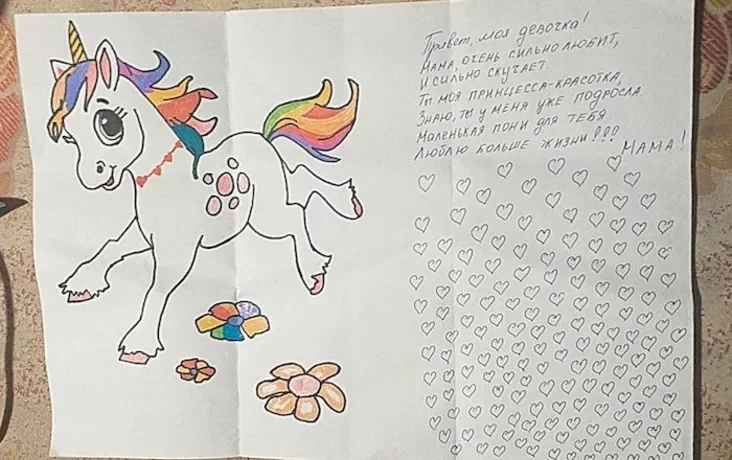 Привет, моя девочка!
Мама, очень сильно любит,
и сильно скучает
Ты моя принцесса-красотка,
Знаю, ты у меня уже подросла.
Маленькая пони для тебя
Люблю больше жизни!!!
Мама!